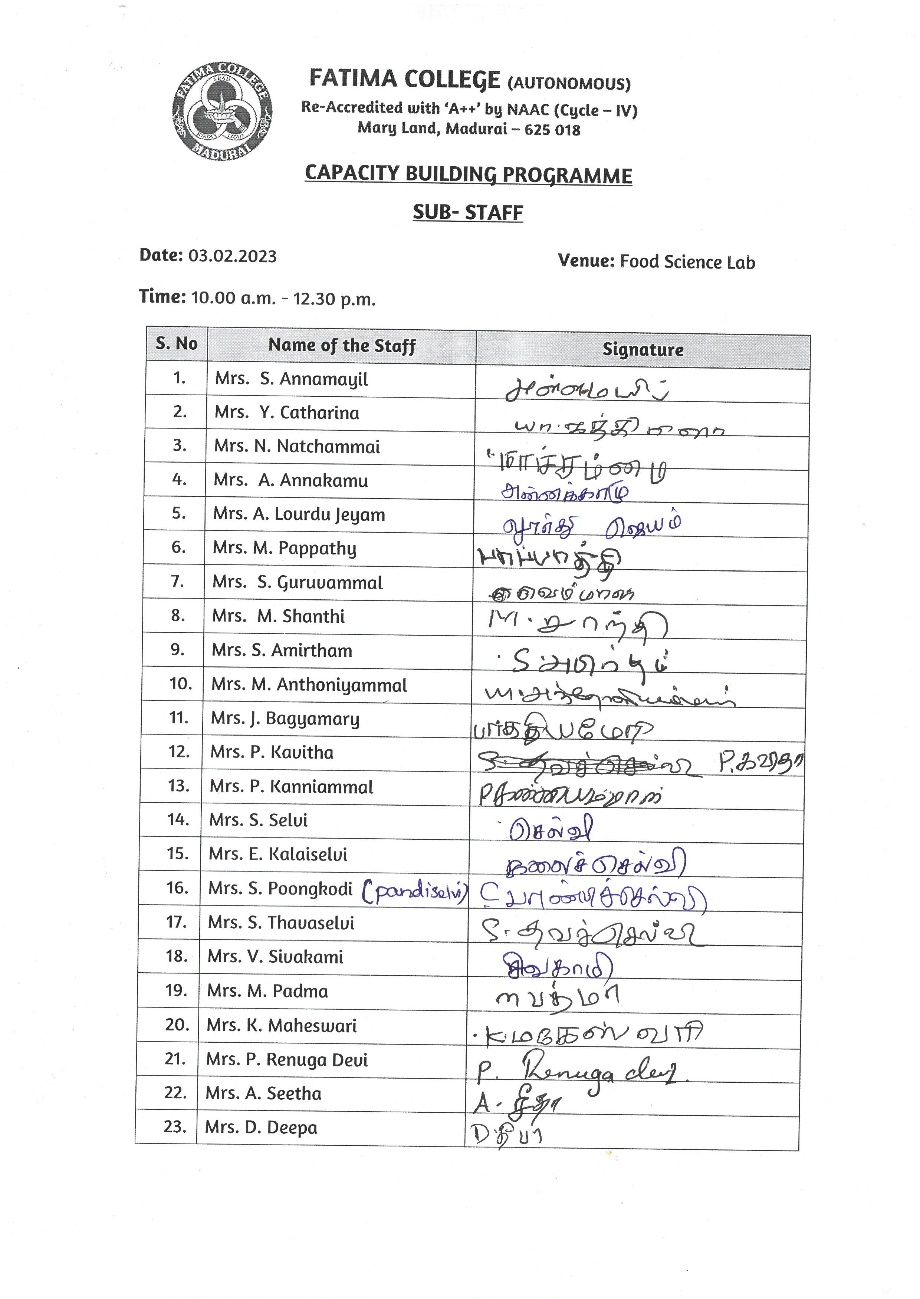 FATIMA COLLEGE
MADURAI
FATIMA COLLEGE (AUTONOMOUS)
Re-Accredited with ‘A++’ by NAAC (Cycle – IV)
Mary Land, Madurai – 625 018
CAPACITY BUILDING PROGRAMME
SUB- STAFF
Date: 03.02.2023 Venue: Food Science Lab
Time: 10.00 a.m. - 12.30 p.m.
S. No Name of the Staff Signature
1. Mrs. S. Annamayil
2. Mrs. Y. Catharina
3. Mrs. N. Natchammai
4. Mrs. A. Annakamu அன்னக்காமு
5. Mrs. A. Lourdu Jeyam லூர்து ஜெயம்
6. Mrs. M. Pappathy பாப்பாத்தி
7. Mrs. S. Guruvammal
8. Mrs. M. Shanthi M. சாந்தி
9. Mrs. S. Amirtham
10. Mrs. M. Anthoniyammal
11. Mrs. J. Bagyamary
12. Mrs. P. Kavitha P.கவிதா
13. Mrs. P. Kanniammal
14. Mrs. S. Selvi செல்வி
15. Mrs. E. Kalaiselvi கலைச்செல்வி
16. Mrs. S. Poongkodi (pandiselvi)
17. Mrs. S. Thavaselvi S. தவச்செல்வி
18. Mrs. V. Sivakami சிவகாமி
19. Mrs. M. Padma பத்மா
20. Mrs. K. Maheswari K மகேஸ்வரி
21. Mrs. P. Renuga Devi P. Renuga devi.
22. Mrs. A. Seetha A. சீதா
23. Mrs. D. Deepa D தீபா